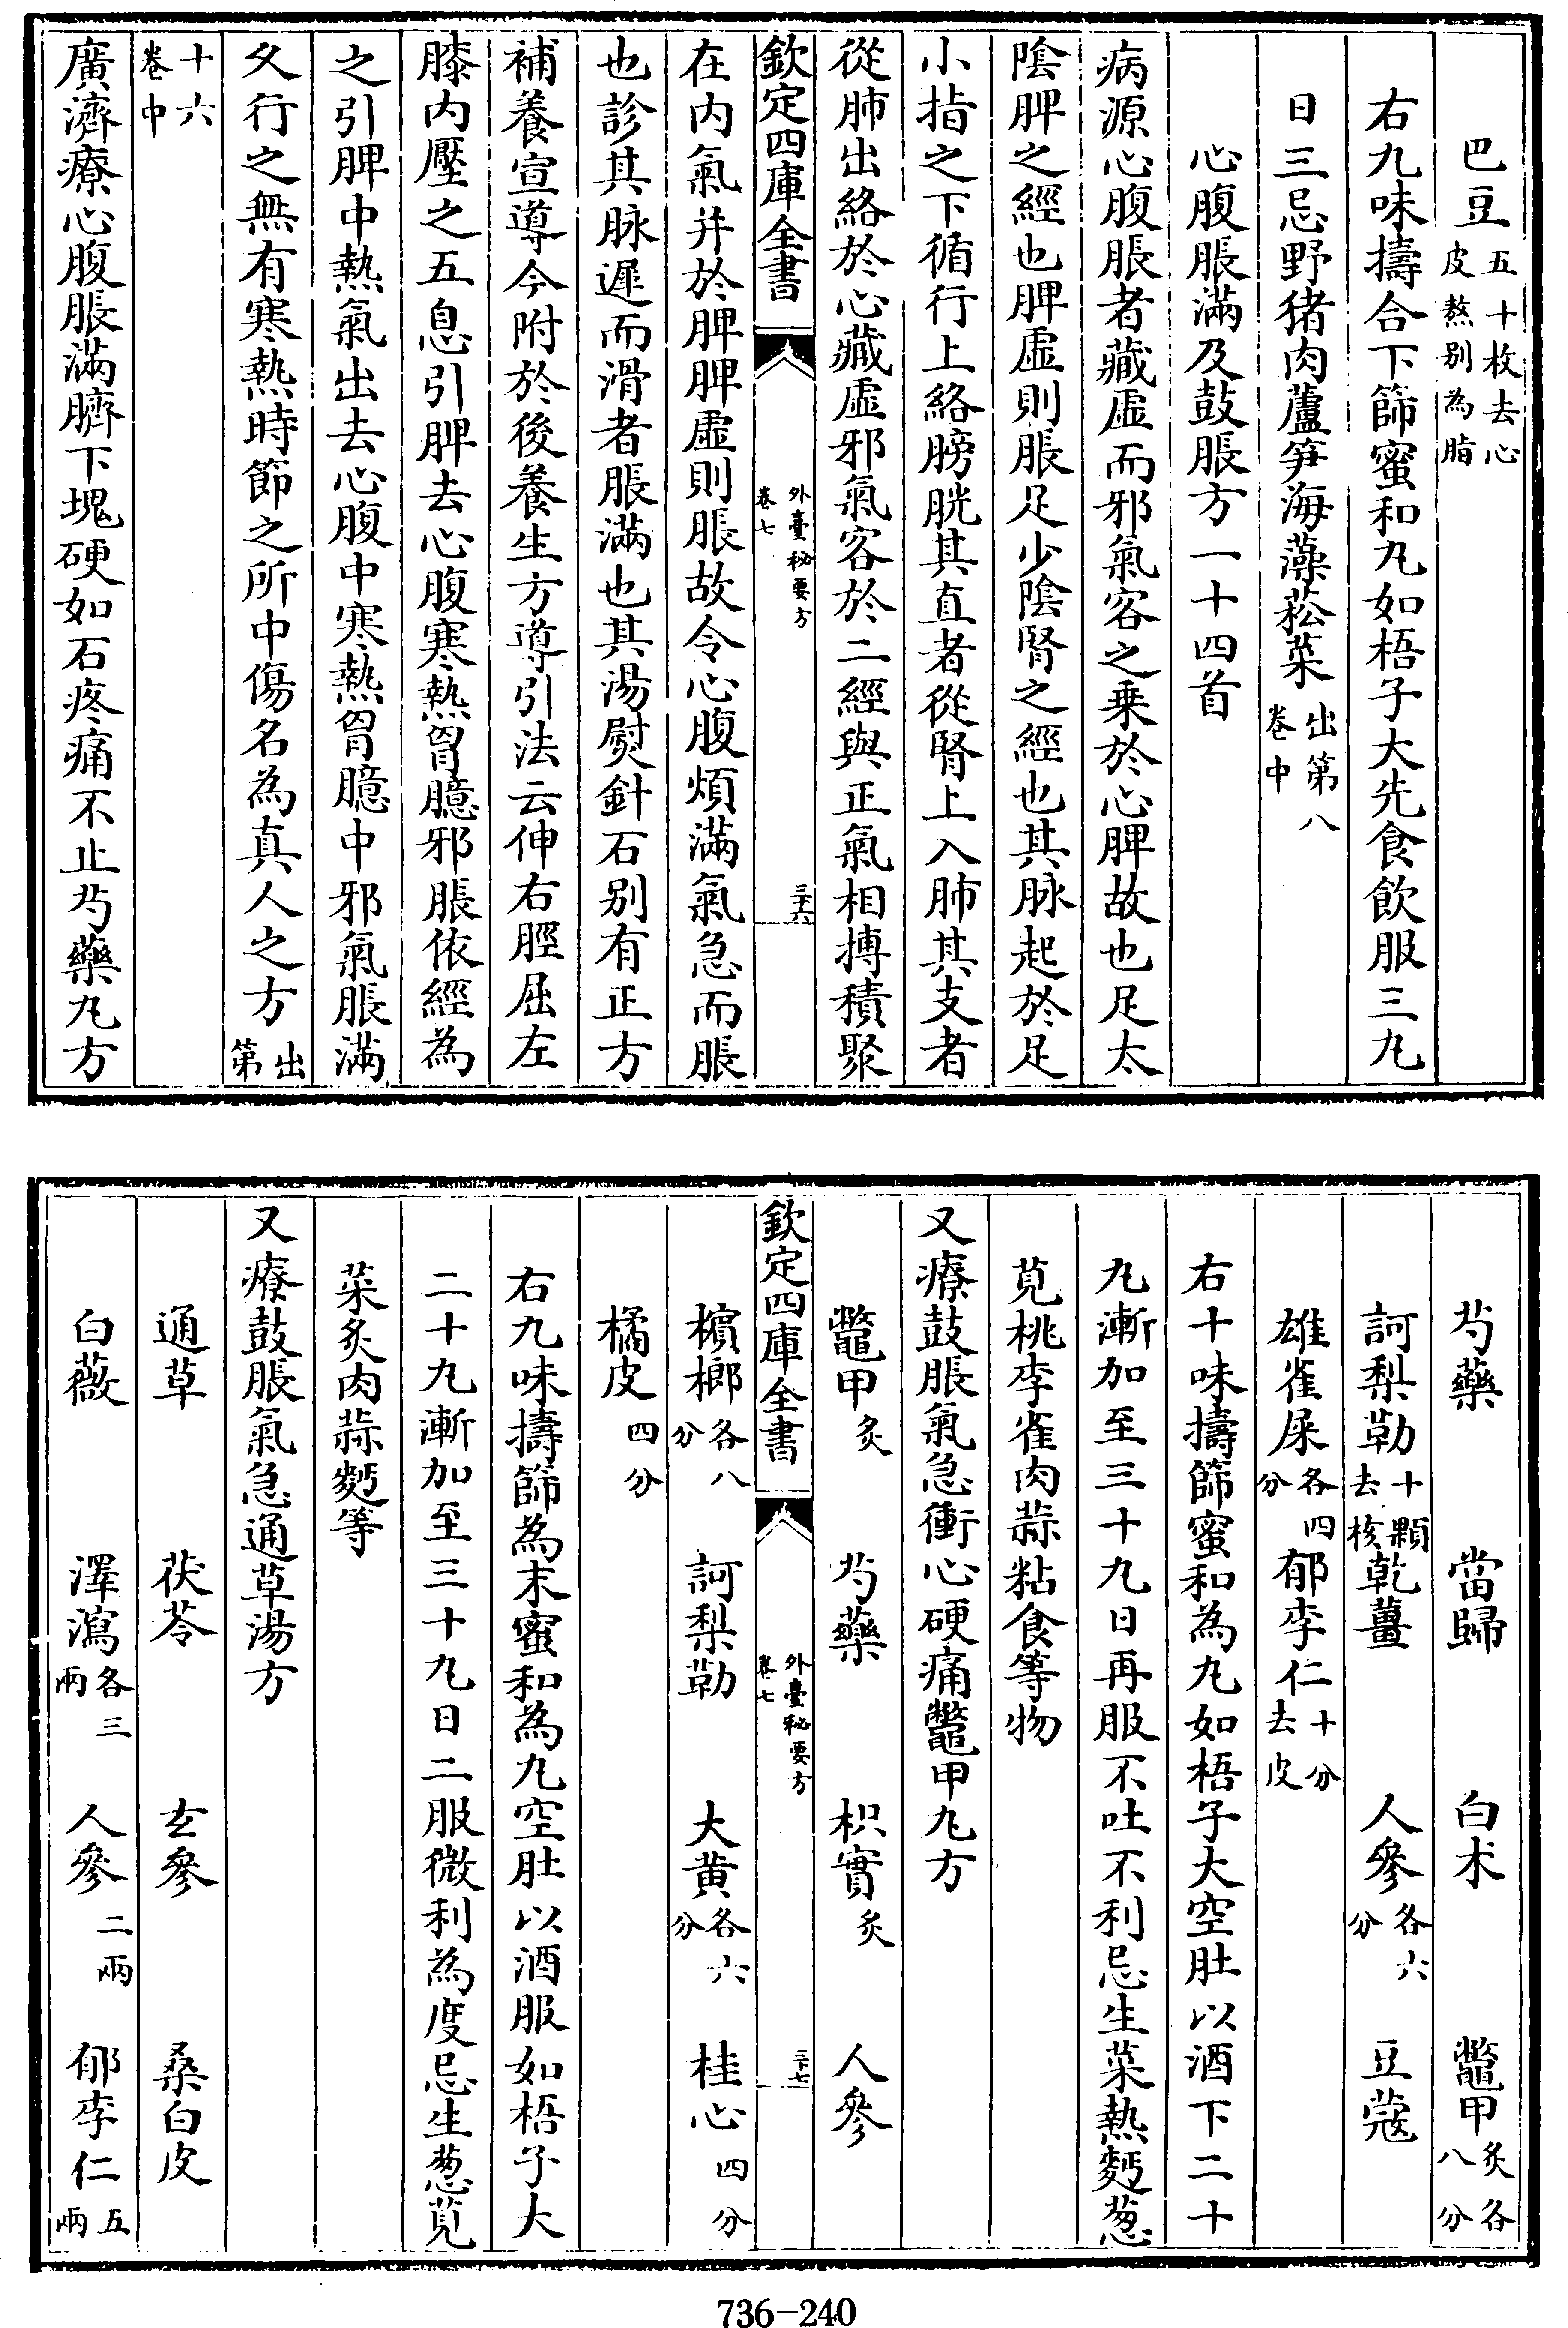 巴豆五十枚去心皮熬別為脂
右九味擣合下篩蜜和丸如梧子大先食飲服三丸
日三忌野猪肉蘆笋海藻菘菜出第八卷中
心腹脹滿及鼓脹方一十四首
病源心腹脹者藏虛而邪氣客之乗於心脾故也足太
陰脾之經也脾虛則脹足少陰腎之經也其脉起於足
小指之下循行上絡膀胱其直者從腎上入肺其支者
從肺出絡於心藏虛邪氣客於二經與正氣相搏積聚
欽定四庫全書 外臺秘要方卷七 三十六
在内氣并於脾脾虛則脹故令心腹煩滿氣急而脹
也診其脉遲而滑者脹滿也其湯熨針石别有正方
補養宣導今附於後養生方導引法云伸右脛屈左
膝内壓之五息引脾去心腹寒熱胷臆邪脹依經為
之引脾中熱氣出去心腹中寒熱胷臆中邪氣脹滿
久行之無有寒熱時節之所中傷名為真人之方出第
十六卷中
廣濟療心腹脹滿臍下塊硬如石疼痛不止芍藥丸方
芍藥 當歸 白朮 鼈甲炙各八分
訶梨勒十顆去核 乾薑 人參各六分 豆蔻
雄雀屎各四分 郁李仁十分去皮
右十味擣篩蜜和為丸如梧子大空肚以酒下二十
丸漸加至三十丸日再服不吐不利忌生菜熱麪葱
莧桃李雀肉蒜粘食等物
又療鼓脹氣急衝心硬痛鼈甲丸方
鼈甲炙 芍藥 枳實炙 人參
欽定四庫全書 外臺秘要方卷七 三十七
檳榔各八分 訶梨勒 大黄各六分 桂心四分
橘皮四分
右九味擣篩為末蜜和為丸空肚以酒服如梧子大
二十丸漸加至三十丸日二服微利為度忌生葱莧
菜炙肉蒜麪等
又療鼓脹氣急通草湯方
通草 茯苓 玄參 桑白皮
白薇 澤瀉各三兩 人參二兩 郁李仁五兩
736-240